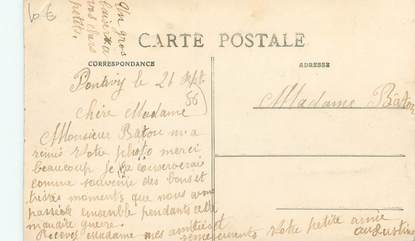 10 €
Un gros
baiser a
vos chers
petits.
CARTE POSTALE
CORRESPONDANCE
ADRESSE
Pontivy le 21 Sept
56
Chère Madame
Madame Baton
Monsieur Baton m a
remis votre photo merci
beaucoup je la conserverais
comme souvenir des bons et
tristes moments que nous avons
passées ensemble pendants cette
maudite guerre.
Recevez madame mes amitiés et
remerciements votre petite amie